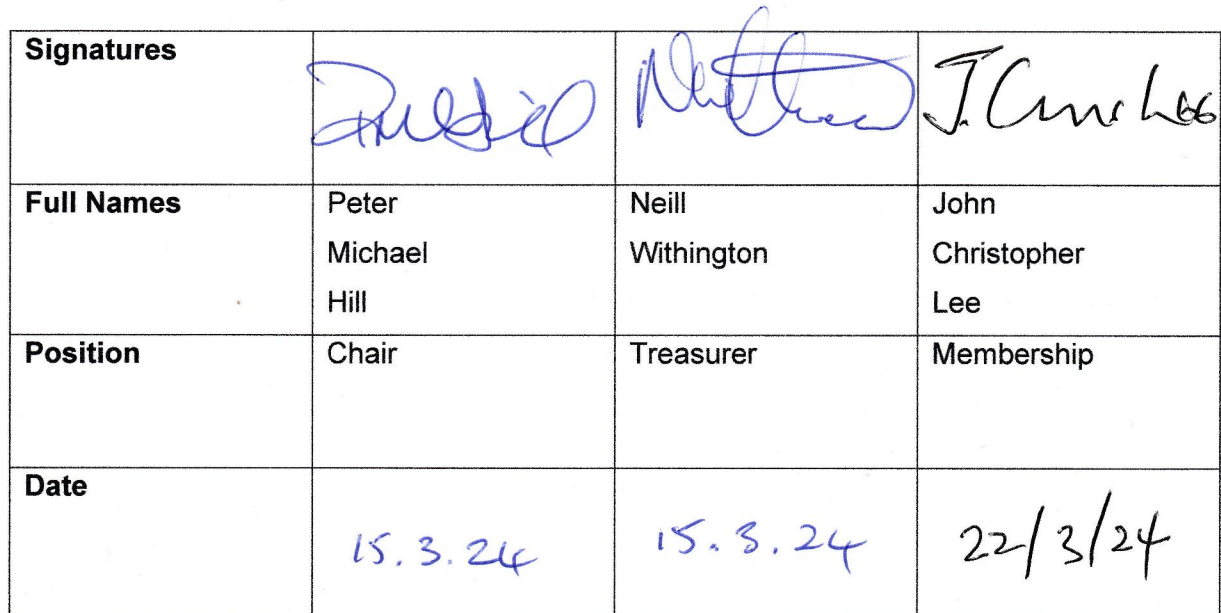 Signatures
J. Chris Lee
Full Names Peter Neill John
Michael Withington Christopher
Hill Lee
Position Chair Treasurer Membership
Date
15.3.24 15.3.24 22/3/24